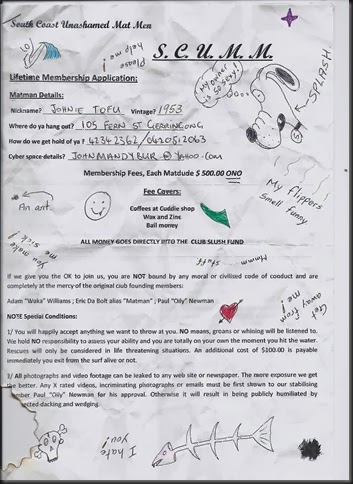 South Coast Unashamed Mat Men
Please help me!
S. C. U. M. M.
Lifetime Membership Application:
My owner is so sexy!
SPLASH
Matman Details:
Nickname? JOHNIE TOFU Vintage? 1953
Where do you hang out? 105 FERN ST GERRINGONG
How do we get hold of ya? 42342362/0420512063
Cyber space details? JOHNMANDYBUR @ YAHOO.COM
Membership Fees, Each Matdude $ 500.00 ONO
My flippers
Smell funny
An ant.
Fee Covers:
Coffees at Cuddle shop
Wax and Zinc
Bail money
You make me sick!
ALL MONEY GOES DIRECTLY INTO THE CLUB SLUSH FUND
Mmmm stuff
If we give you the OK to join us, you are NOT bound by any moral or civilised code of conduct and are
completely at the mercy of the original club founding members:
Adam "Waka" Williams ; Eric Da Bolt alias "Matman" ; Paul "Oily" Newman
Get away from me!
NOTE Special Conditions:
1/ You will happily accept anything we want to throw at you. NO moans, groans or whining will be listened to.
We hold NO responsibility to assess your ability and you are totally on your own the moment you hit the water.
Rescues will only be considered in life threatening situations. An additional cost of $100.00 is payable
immediately you exit from the surf alive or not.
2/ All photographs and video footage can be leaked to any web site or newspaper. The more exposure we get
the better. Any X rated videos, incriminating photographs or emails must be first shown to our stabilising
mber Paul "Oily" Newman for his approval. Otherwise it will result in being publicly humiliated by
ected dacking and wedging.
I hate you!